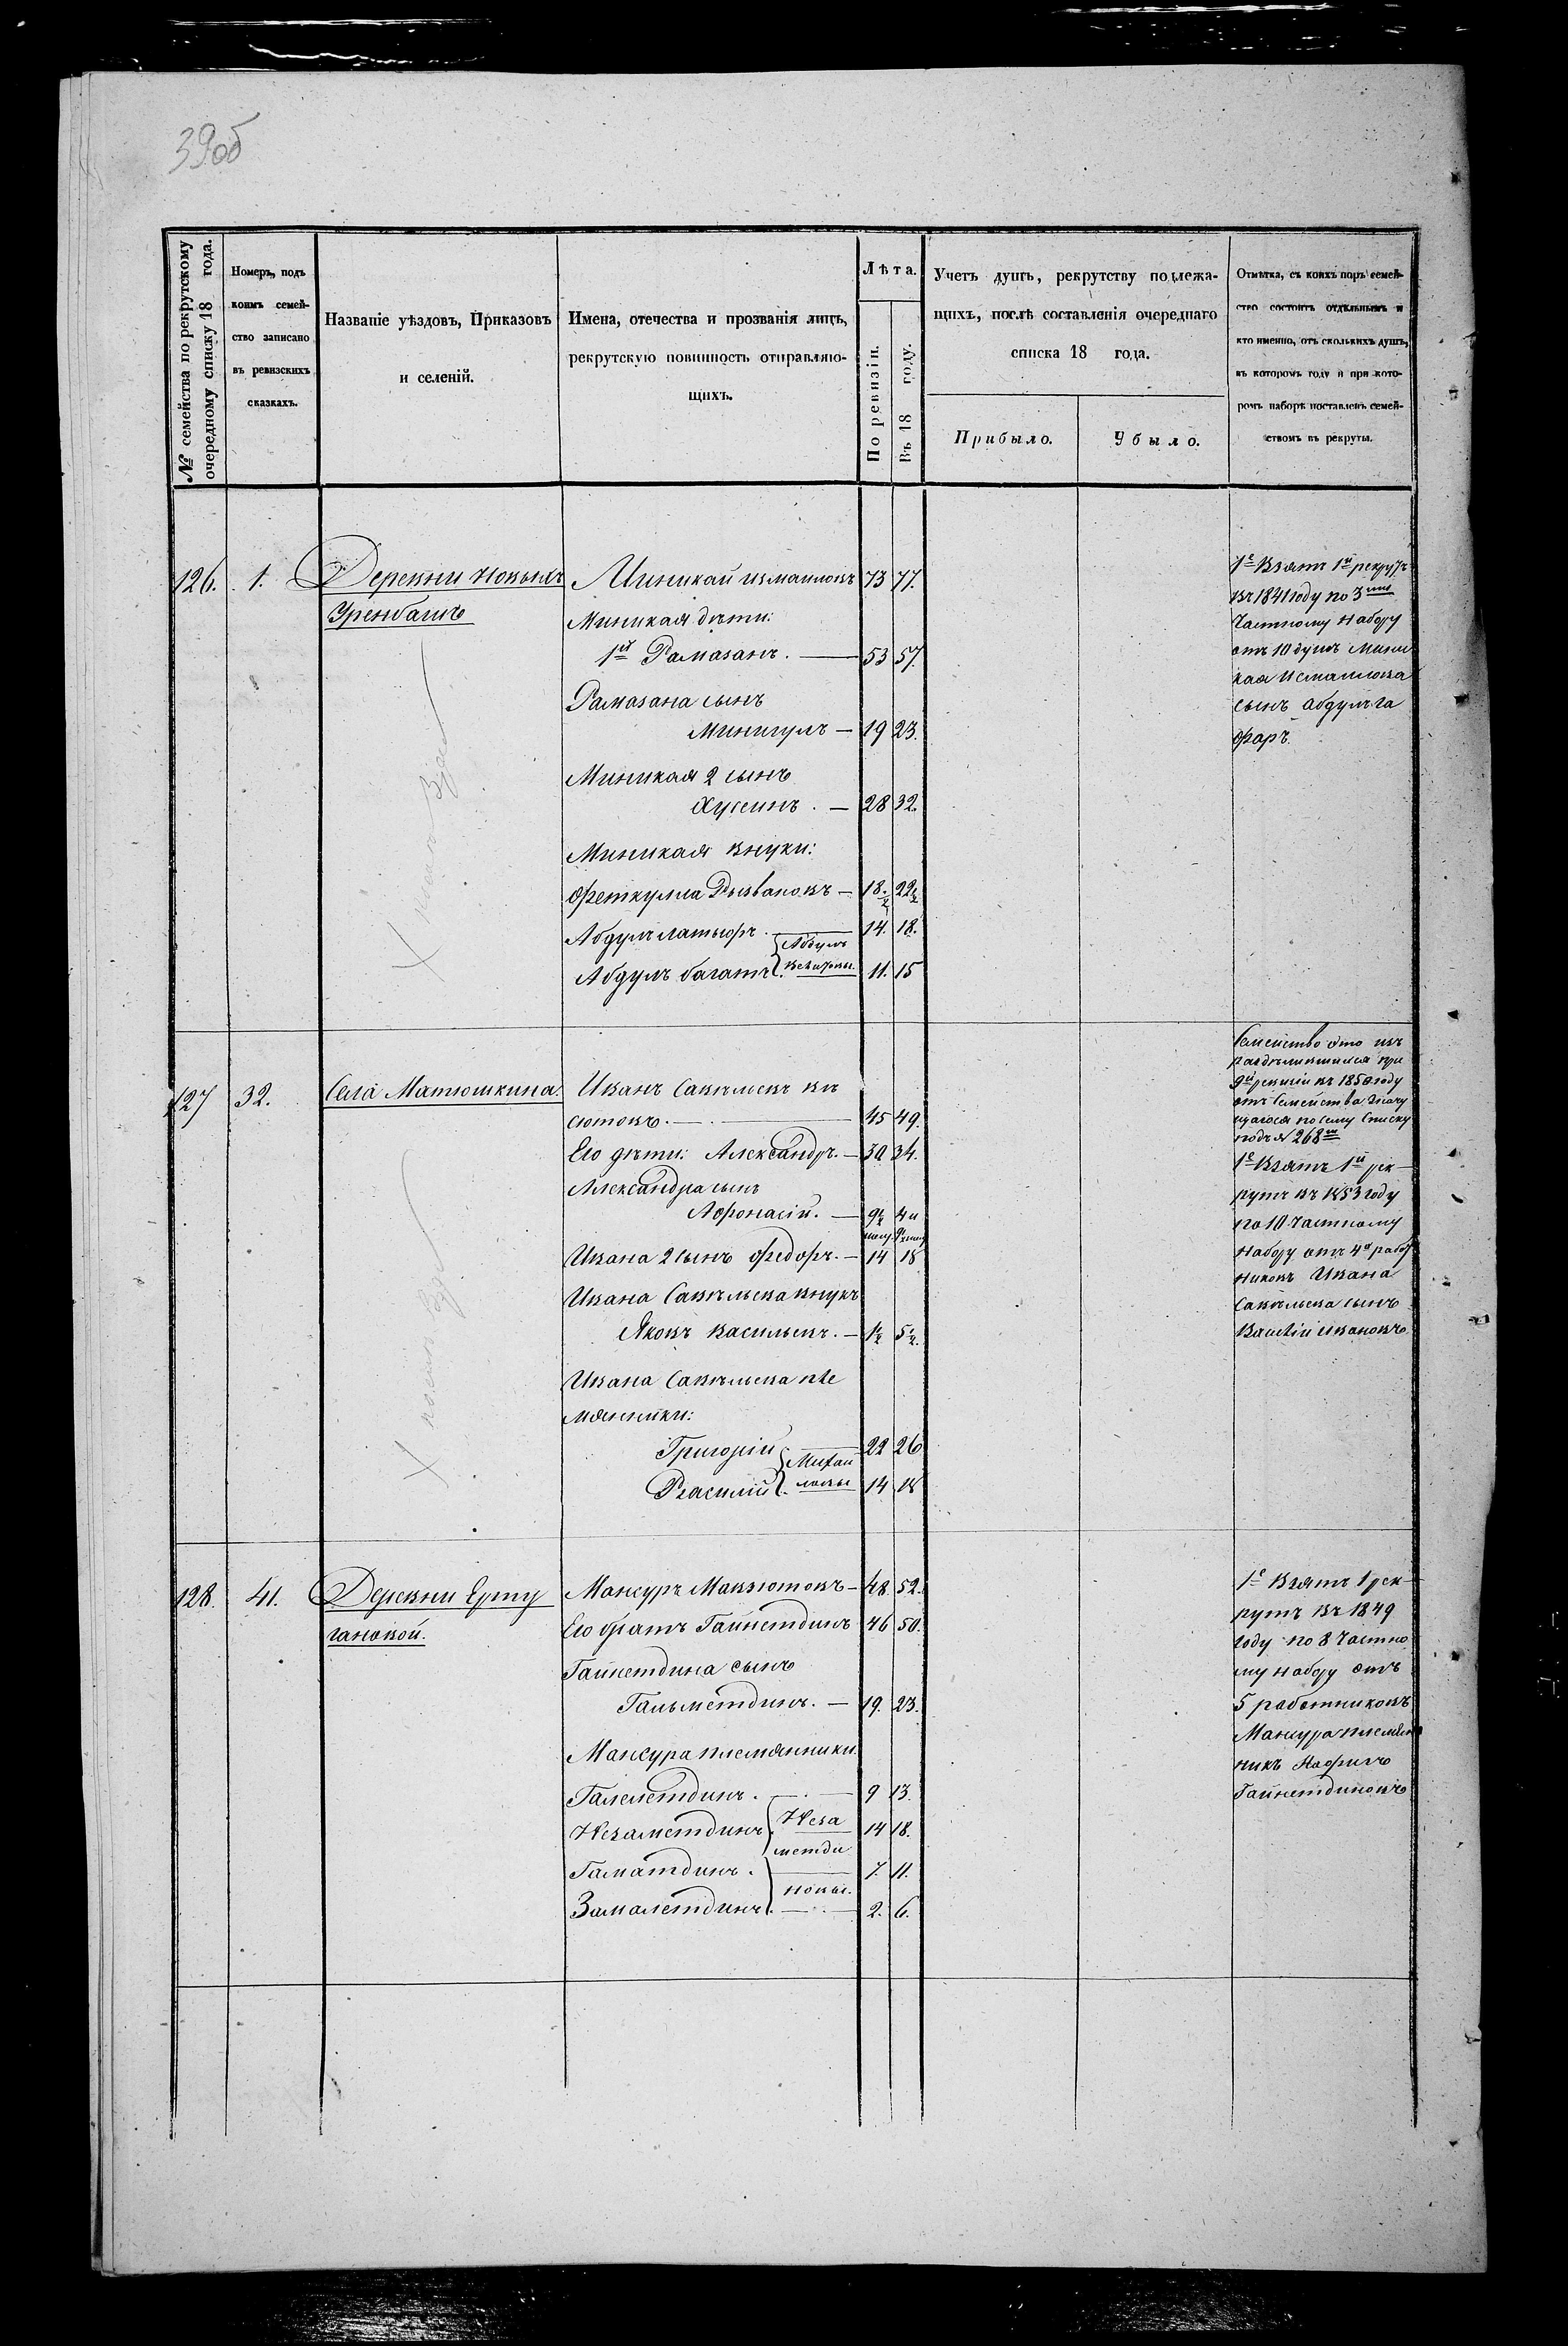 39об
№ семейства по рекрутскому
очередному списку 18 года.
Номеръ, подъ
коимъ семей-
ство записано
въ ревизскихъ
сказкахъ.
Названіе уѣздовъ, Приказовъ
и селеній.
Имена, отечества и прозванія лицъ,
рекрутскую повинность отправляю-
щихъ.
Лѣта.
По ревизіи.
Въ 18 году.
Учетъ душъ, рекрутству подлежа-
щихъ, послѣ составленія очереднаго
списка 18 года.
Прибыло.
Убыло.
Отмѣтка, съ коихъ поръ семей-
ство состоитъ отдѣльнымъ и
кто именно, отъ сколькихъ душъ,
въ которомъ году и при кото-
ромъ наборѣ поставленъ семей-
ствомъ въ рекруты.
126. 1. Деревни новыхъ
Уренбашъ
Миникай измаиловъ 73 77.
Миникая дѣти:
1й Рамазанъ. — 53 57.
Рамазана сынъ
Минигулъ — 19 23.
Миникая 2 сынъ
Хусеинъ. — 28 32.
Миникая внуки:
Феткулла Рызвановъ — 18½ 22½
Абдулъ латыфъ. 14. 18.
Абдулъ багатъ 11. 15
1е Взятъ 1й рекрутъ
въ 1841 году по 3ему
Частному набору
отъ 10 душъ Мини
кая Исмаилова
сынъ абдулъ га
фаръ.
127 32. Села Матюшкина.
Иванъ Савельевъ ве
сютовъ. — 45 49.
Его дѣти: Александръ. — 30 34.
Александра сынъ
Афонасій. —
Ивана 2 сынъ федоръ. — 14 18
Ивана Савельева внукъ
Яковъ васильевъ. — 1½ 5½.
Ивана Савельева пле
мянники:
Григорій 22 26
Василій 14 18
Михаи
ловы
Семейство это изъ
раздѣлившихся при
9й ревизіи въ 1850 году
отъ Семейства значу
щагося по сему Списку
подъ № 268м
1е Взятъ 1й рек—
рутъ въ 1853 году
по 10 частному
набору отъ 4х работ
никовъ Ивана
Савельева сынъ
Василій ивановъ
128. 41. Деревни Ерту
гановой.
Мансуръ Мавзютовъ — 48. 52.
Его братъ Гайнетдинъ 46 50.
Гайнетдина сынъ
Гильметдинъ. — 19. 23.
Мансура племянники.
Галеметдинъ. — 9 13.
Незаметдинъ 14 18.
Гаматдинъ. 7. 11.
Замалетдинъ. 2. 6.
Неза
метди
новы.
1е Взятъ 1 рек—
рутъ въ 1849
году по 8 Частно
му набору отъ
5 работниковъ
Мансура племян
никъ Нафикъ
Гайнетдиновъ